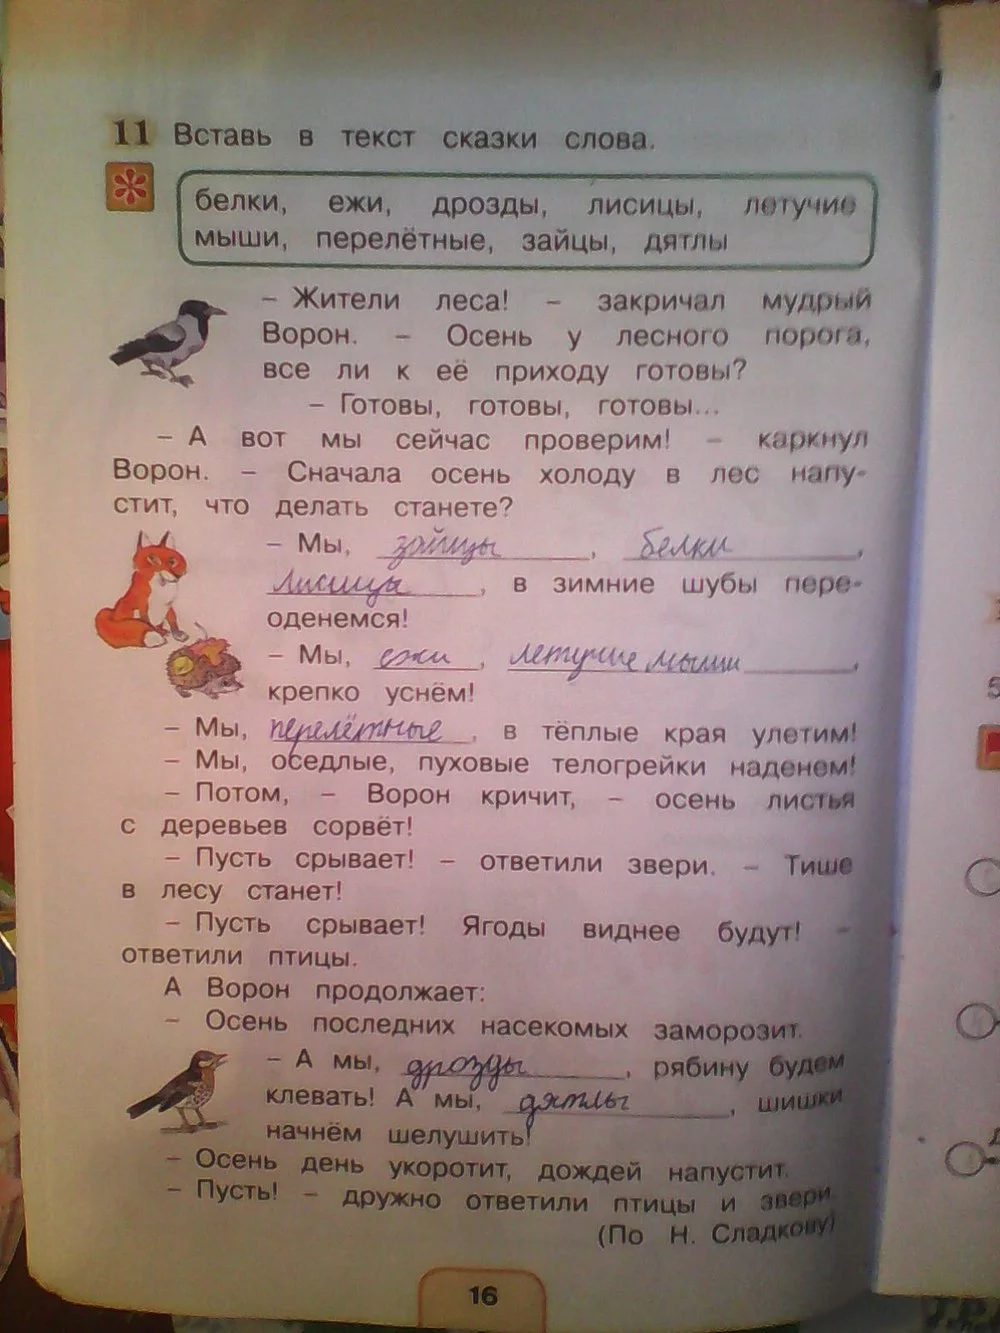 11 Вставь в текст сказки слова.
белки, ежи, дрозды, лисицы, летучие
мыши, перелётные, зайцы, дятлы
– Жители леса! – закричал мудрый
Ворон. – Осень у лесного порога,
все ли к её приходу готовы?
– Готовы, готовы, готовы...
– А вот мы сейчас проверим! – каркнул
Ворон. – Сначала осень холоду в лес напу-
стит, что делать станете?
– Мы, зайцы, белки,
лисицы, в зимние шубы пере-
оденемся!
– Мы, ежи, летучие мыши,
крепко уснём!
– Мы, перелётные, в тёплые края улетим!
– Мы, оседлые, пуховые телогрейки наденем!
– Потом, – Ворон кричит, – осень листья
с деревьев сорвёт!
– Пусть срывает! – ответили звери. – Тише
в лесу станет!
– Пусть срывает! Ягоды виднее будут! –
ответили птицы.
А Ворон продолжает:
– Осень последних насекомых заморозит.
– А мы, дрозды, рябину будем
клевать! А мы, дятлы, шишки
начнём шелушить!
– Осень день укоротит, дождей напустит.
– Пусть! – дружно ответили птицы и звери.
(По Н. Сладкову)
16
5